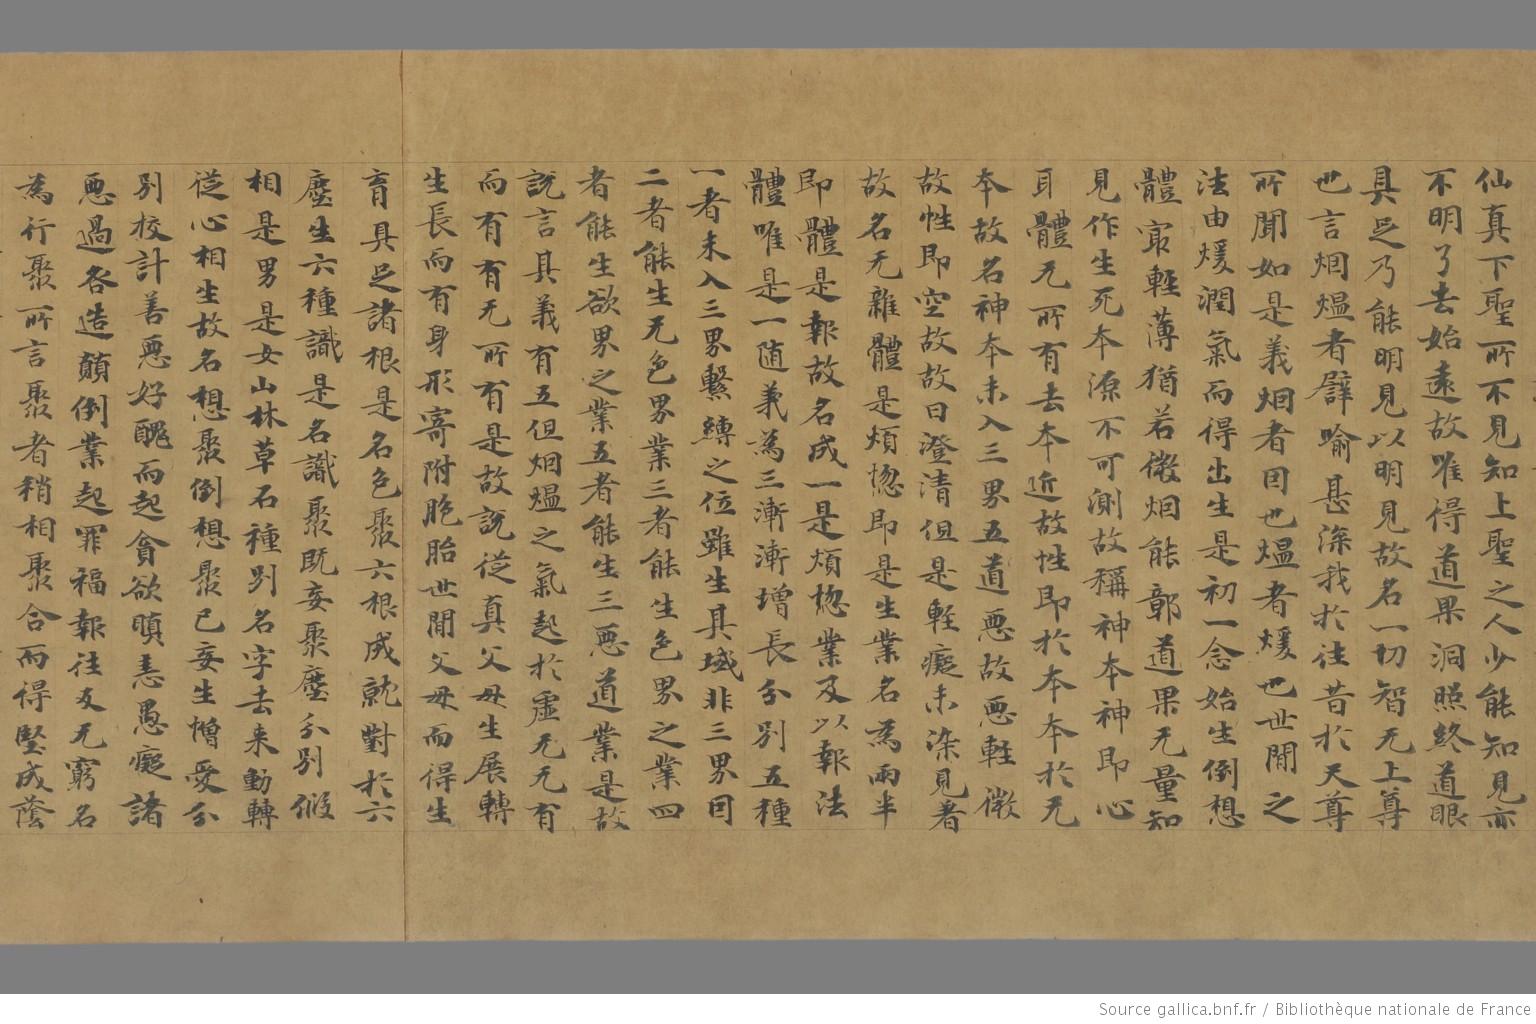 仙真下聖所不見知上聖之人少能知見亦
不明了去始遠故唯得道果洞照終道眼
具足乃能明見以明見故名一切智无上尊
也言烟熅者譬喻甚深我於往昔於天尊
所聞如是義烟者因也熅者煖也世間之
法由煖潤氣而得出生是初一念始生倒想
體寂輕薄猶若微烟能鄣道果无量知
見作生死本源不可測故稱神本神即心
耳體无所有去本近故性即於本本於无
本故名神本本未入三界五道惡故惡輕微
故性即空故故曰澄清但是輕癡未染見著
故名无雜體是煩惚即是生業名為兩半
即體是報故名成一是煩惚業及以報法
體唯是一随義為三漸漸增長分別五種
一者未入三界繫縛之位雖生具域非三界因
二者能生无色界業三者能生色界之業四
者能生欲界之業五者能生三惡道業是故
說言具義有五但烟熅之氣起於虛无无有
而有有无所有是故說從真父母生展轉
生長而有身形寄附胞胎世間父母而得生
育具足諸根是名色聚六根成就對於六
塵生六種識是名識聚既妄聚塵分別假
相是男是女山林草石種別名字去来動轉
從心相生故名想聚倒想聚已妄生憎愛分
別校計善惡好醜而起貪欲瞋恚愚癡諸
惡過各造顛倒業起罪福報往反无窮名
為行聚所言聚者稍相聚合而得堅成蔭
Source gallica.bnf.fr / Bibliothèque nationale de France